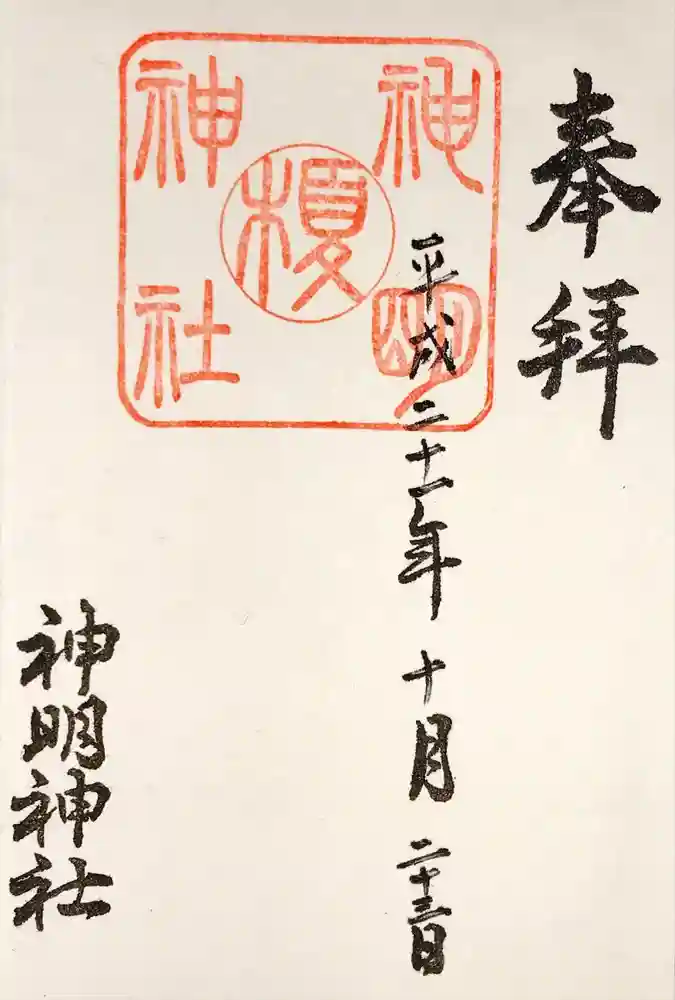 奉拝
平成二十一年十月二十三日
神明神社
神明
榎
神社